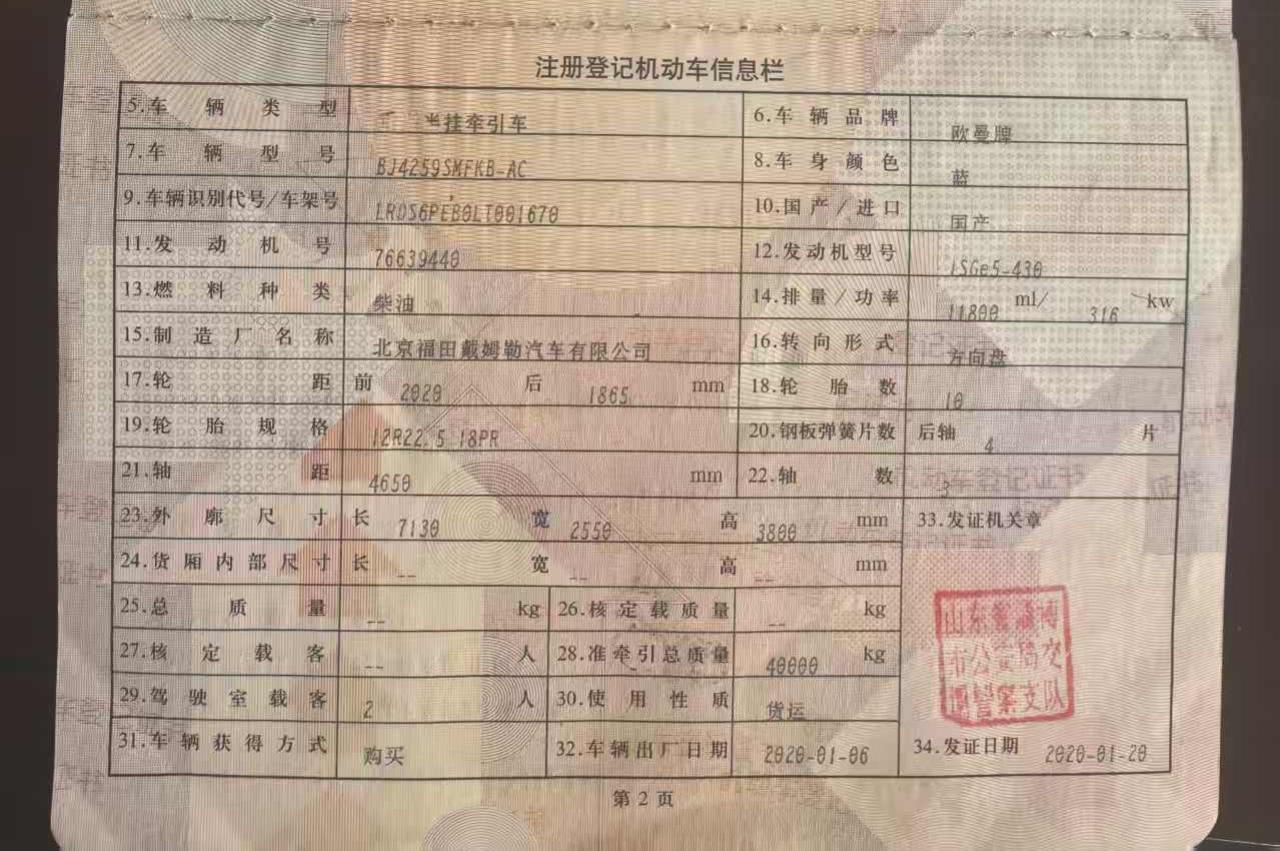 注册登记机动车信息栏
5.车辆类型 半挂牵引车 6.车辆品牌 欧曼牌
7.车辆型号 BJ4259SMFKB-AC 8.车身颜色 蓝
9.车辆识别代号/车架号 LRDS6PEB0LT001670 10.国产/进口 国产
11.发动机号 76639440 12.发动机型号 ISGe5-430
13.燃料种类 柴油 14.排量/功率 11800 ml/ 316 kw
15.制造厂名称 北京福田戴姆勒汽车有限公司 16.转向形式 方向盘
17.轮距 前 2020 后 1865 mm 18.轮胎数 10
19.轮胎规格 12R22.5 18PR 20.钢板弹簧片数 后轴 4 片
21.轴距 4650 mm 22.轴数 3
23.外廓尺寸 长 7130 宽 2550 高 3800 mm 33.发证机关章
24.货厢内部尺寸 长 -- 宽 -- 高 -- mm
25.总质量 -- kg 26.核定载质量 -- kg
山东省淄博
市公安局交
通警察支队
27.核定载客 -- 人 28.准牵引总质量 40000 kg
29.驾驶室载客 2 人 30.使用性质 货运
31.车辆获得方式 购买 32.车辆出厂日期 2020-01-06 34.发证日期 2020-01-20
第2页